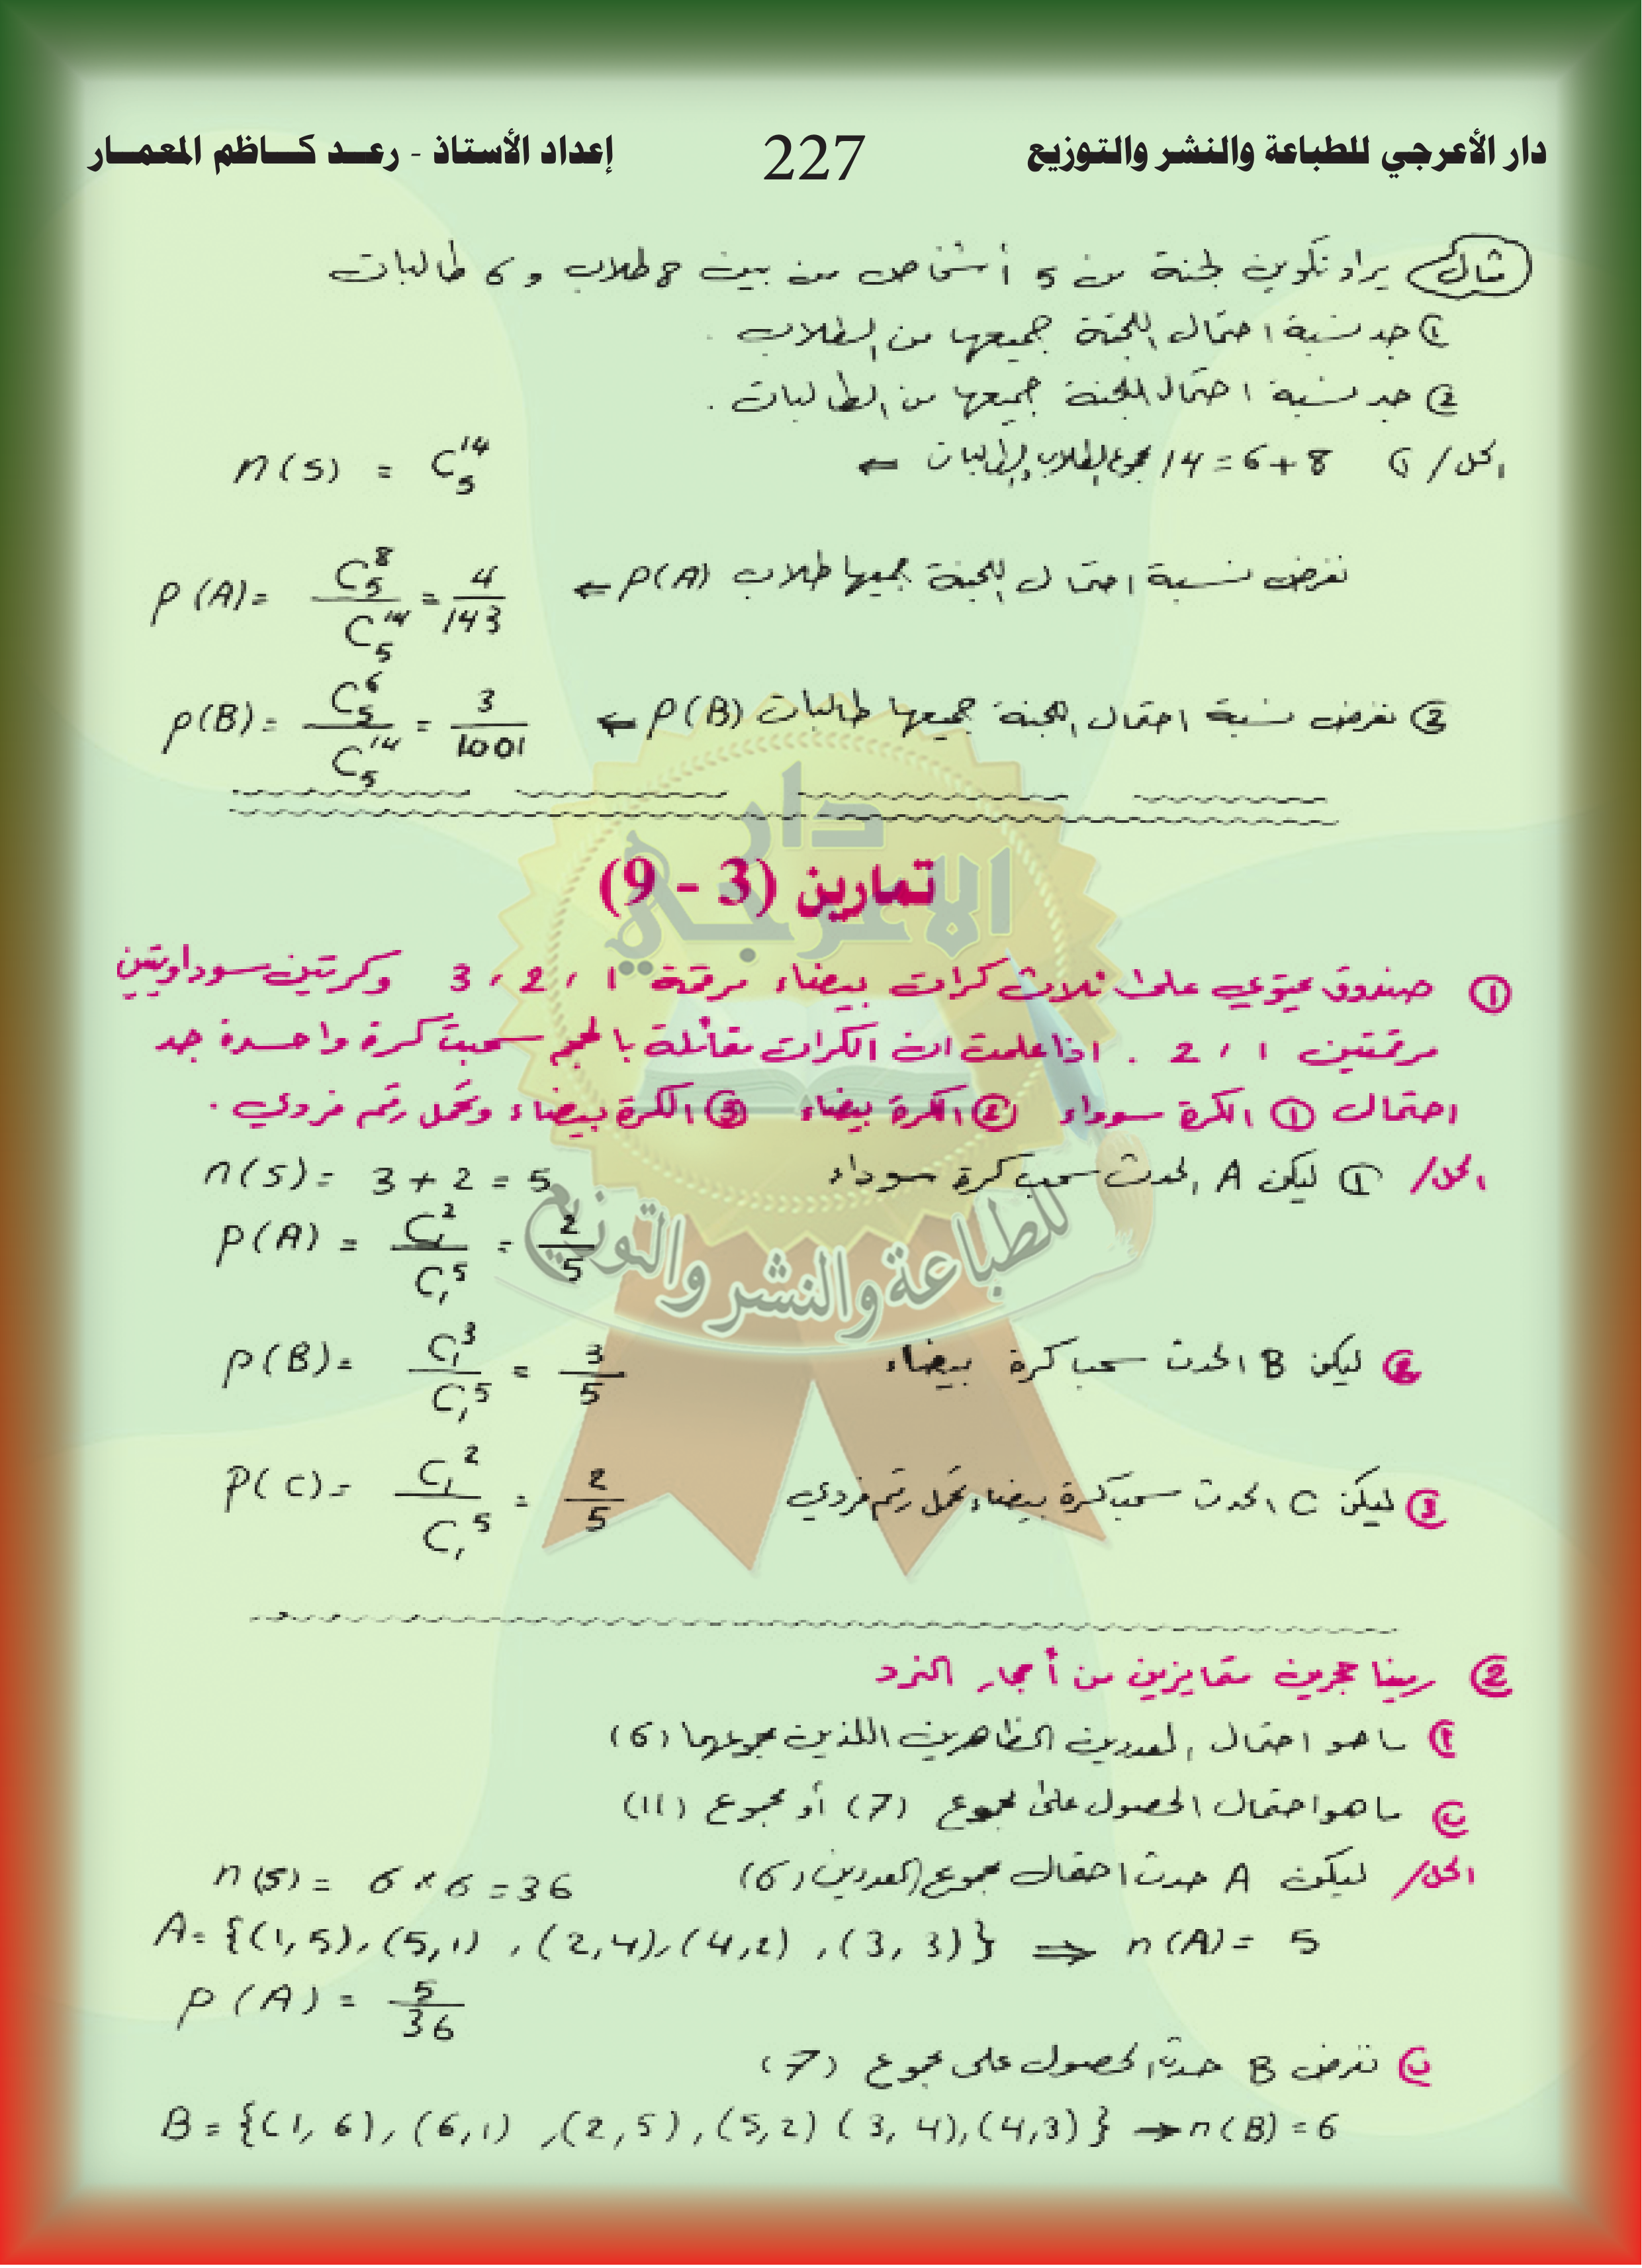 دار الأعرجي للطباعة والنشر والتوزيع 227 إعداد الأستاذ - رعـد كـاظم المعمـار
مثال يراد تكوين لجنة من 5 أشخاص من بين 8 طلاب و 6 طالبات
① جد نسبة احتمال اللجنة جميعها من الطلاب .
② جد نسبة احتمال اللجنة جميعها من الطالبات .
الحل / ① 8 + 6 = 14 مجموع الطلاب والطالبات ⇐ n(S) = C₅¹⁴
نفرض نسبة احتمال اللجنة جميعها طلاب P(A) ⇐ P(A) = C₅⁸ / C₅¹⁴ = 4/143
② نفرض نسبة احتمال اللجنة جميعها طالبات P(B) ⇐ P(B) = C₅⁶ / C₅¹⁴ = 3/1001
تمارين (3 - 9)
① صندوق يحتوي على ثلاث كرات بيضاء مرقمة 1 ، 2 ، 3 وكرتين سوداويتين
مرقمتين 1 ، 2 . اذا علمت ان الكرات متماثلة بالحجم سحبت كرة واحدة جد
احتمال ① الكرة سوداء ② الكرة بيضاء ③ الكرة بيضاء وتحمل رقم فردي .
الحل / ① ليكن A الحدث سحب كرة سوداء n(S) = 3 + 2 = 5
P(A) = C₁² / C₁⁵ = 2/5
② ليكن B الحدث سحب كرة بيضاء P(B) = C₁³ / C₁⁵ = 3/5
③ ليكن C الحدث سحب كرة بيضاء تحمل رقم فردي P(C) = C₁² / C₁⁵ = 2/5
② رمينا حجرين متمايزين من أحجار النرد
أ ما هو احتمال العددين الظاهرين اللذين مجموعهما (6)
ب ما هو احتمال الحصول على مجموع (7) أو مجموع (11)
الحل / ليكن A حدث احتمال مجموع العددين (6) n(S) = 6 × 6 = 36
A = {(1,5),(5,1),(2,4),(4,2),(3,3)} ⇒ n(A) = 5
P(A) = 5/36
ب نفرض B حدث الحصول على مجموع (7)
B = {(1,6),(6,1),(2,5),(5,2)(3,4),(4,3)} → n(B) = 6
دار
الاعرجي
للطباعة والنشر والتوزيع